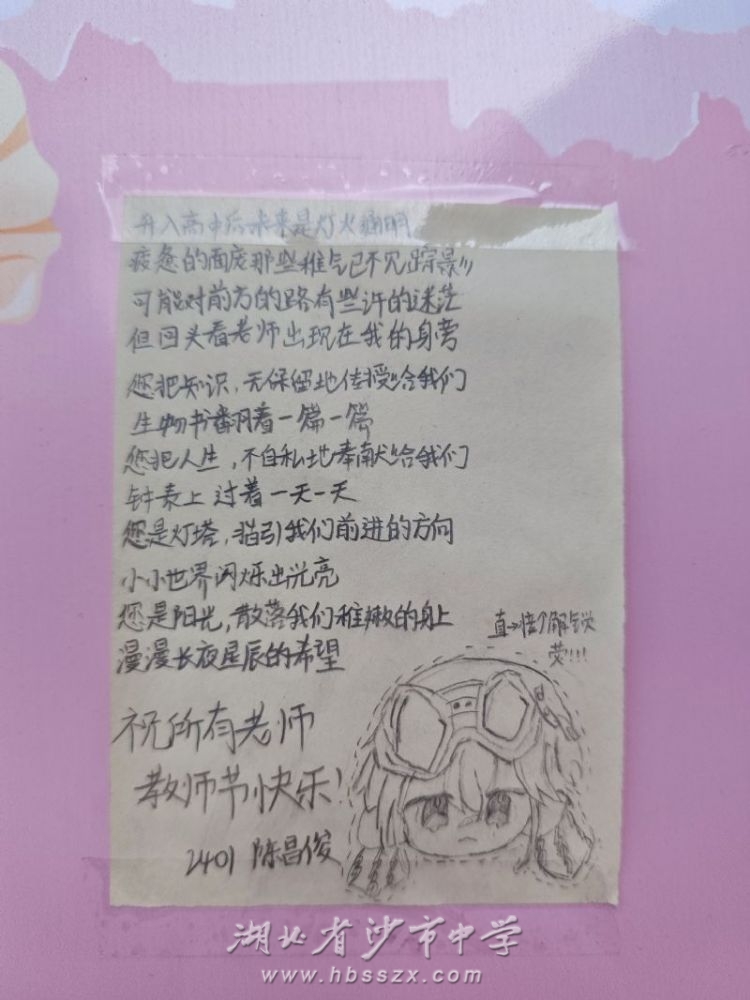 升入高中后未来是灯火通明
疲惫的面庞那些稚气已不见踪影
可能对前方的路有些许的迷茫
但回头看老师出现在我的身旁
您把知识，无保留地传授给我们
生物书翻着一篇一篇
您把人生，不自私地奉献给我们
钟表上过着一天一天
您是灯塔，指引我们前进的方向
小小世界闪烁出光亮
您是阳光，散落我们稚嫩的身上
漫漫长夜星辰的希望
祝所有老师
教师节快乐！
2401 陈昌俊
湖北省沙市中学
www.hbsszx.com